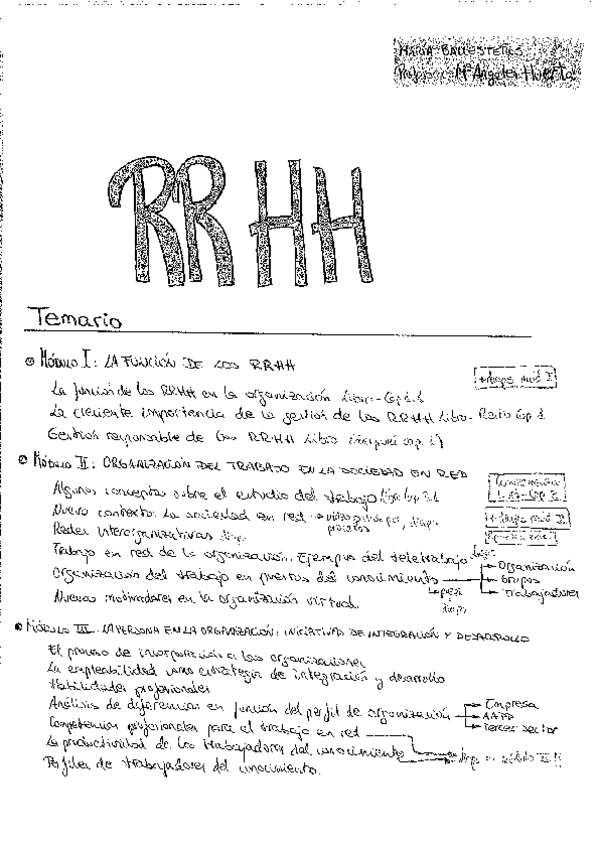 MARÍA BALLESTEROS
Profesora: Mª Angeles Huerta
RRHH
Temario
MÓDULO I: LA FUNCIÓN DE LOS RRHH
La función de los RRHH en la organización Libro - Cap 1.1
La creciente importancia de la gestión de los RRHH Libro - Cap 1
Gestión responsable de los RRHH Libro cap. 1)
MÓDULO II: ORGANIZACIÓN DEL TRABAJO EN LA SOCIEDAD EN RED
Algunos conceptos sobre el estudio del trabajo Libro Cap 3.1
Nuevo contexto: La sociedad en red
Redes interorganizativas diaps
Trabajo en red de la organización. Ejemplos del teletrabajo diaps
Organización del trabajo en puestos del conocimiento → Organización
→ Grupos
→ Trabajadores
Nuevos motivadores en la organización virtual.
MÓDULO III. LA PERSONA EN LA ORGANIZACIÓN: INICIATIVAS DE INTEGRACIÓN Y DESARROLLO
El proceso de incorporación a las organizaciones
La empleabilidad como estrategia de integración y desarrollo
Habilidades profesionales
Análisis de diferencias en función del perfil de organización → Empresa
→ AAPP
→ Tercer sector
Competencias profesionales para el trabajo en red
La productividad de los trabajadores del conocimiento
Perfiles de trabajadores del conocimiento.